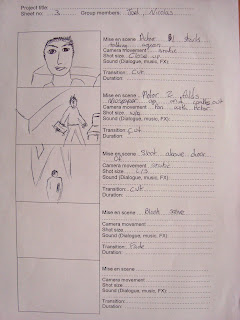 Project title:
Sheet no: 3 Group members: Joel, Nicolas
Mise en scene: Actor 1 starts
talking again
Camera movement: static
Shot size: Close up
Sound (Dialogue, music, FX):
Transition: Cut
Duration:
Mise en scene: Actor 2 folds
newspaper up and comes out
Camera movement: Pan with Actor
Shot size: w/s
Sound (Dialogue, music, FX):
Transition: Cut
Duration:
Mise en scene: Shot above door
Of
Camera movement: static
Shot size: L/S
Sound (Dialogue, music, FX):
Transition: cut
Duration:
Mise en scene: Blank scene
Camera movement:
Shot size:
Sound (Dialogue, music, FX):
Transition: Fade
Duration:
Mise en scene:
Camera movement:
Shot size:
Sound (Dialogue, music, FX):
Transition:
Duration: